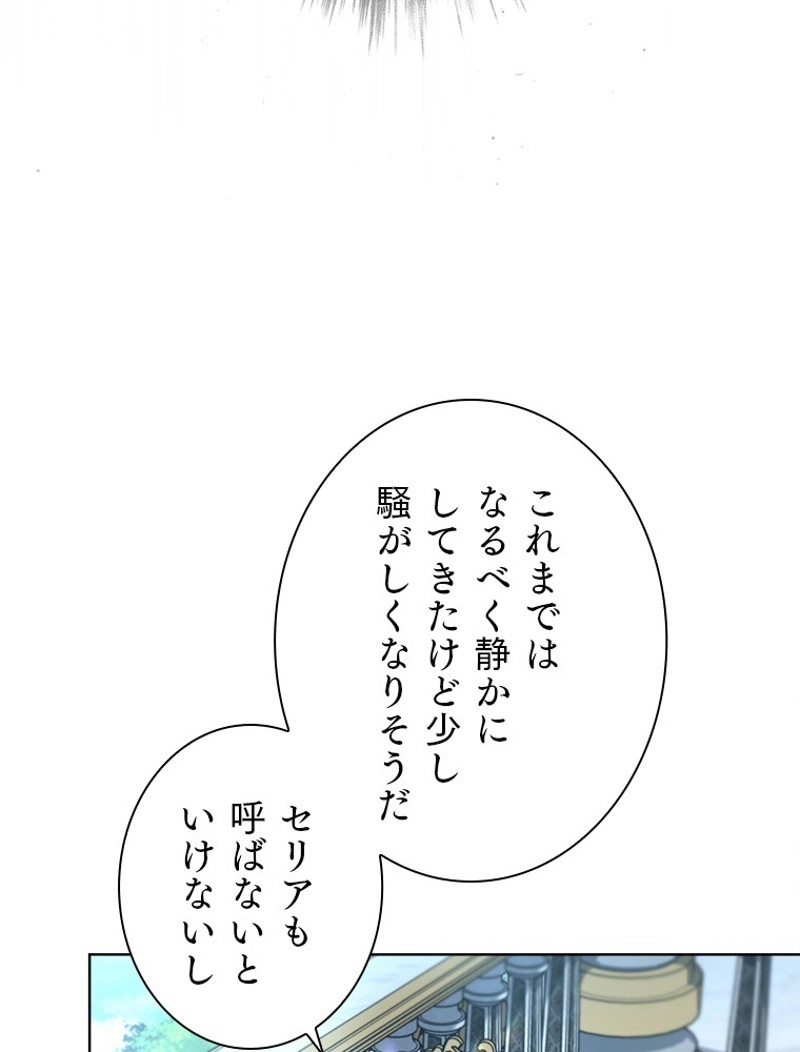 これまでは
なるべく静かに
してきたけど少し
騒がしくなりそうだ
セリアも
呼ばないと
いけないし